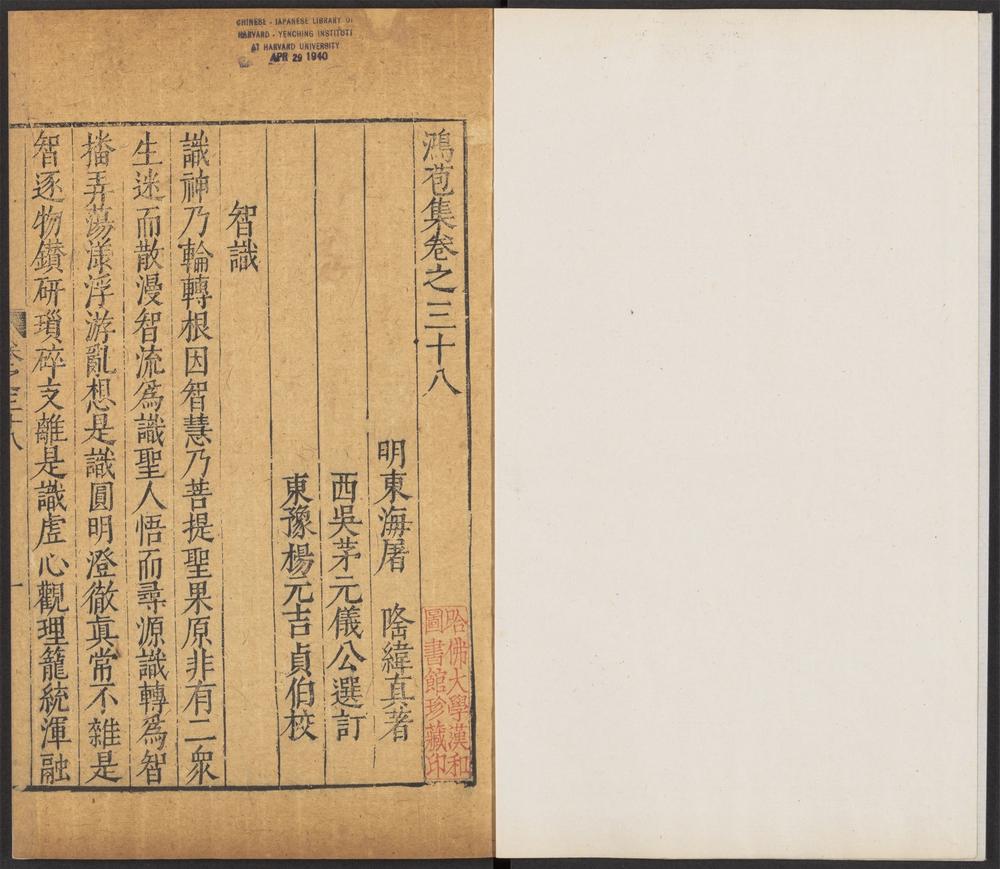 CHINESE - JAPANESE LIBRARY OF
HARVARD - YENCHING INSTITUTE
AT HARVARD UNIVERSITY
APR 29 1940
鴻苞集卷之三十八
明東海屠　隆緯真著
西吳茅元儀公選訂
東豫楊元吉貞伯校
哈佛大學漢和
圖書館珍藏印
智識
識神乃輪轉根因智慧乃菩提聖果原非有二衆
生迷而散漫智流爲識聖人悟而尋源識轉爲智
播弄蕩漾浮游亂想是識圓明澄徹眞常不雜是
智逐物鑚研瑣碎支離是識虛心觀理籠統渾融
卷之三十八
一